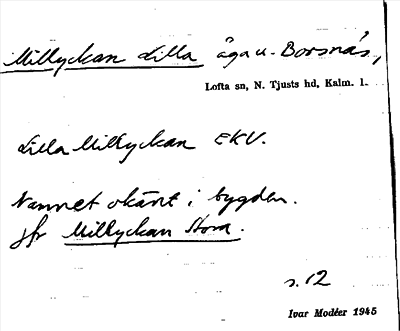 Millyckan Lilla äga u. Borsnäs,
Lofta sn, N. Tjusts hd, Kalm. l.
Lilla Millyckan EKV.
Namnet okänt i bygden.
jfr Millyckan Stora.
s. 12
Ivar Modéer 1945